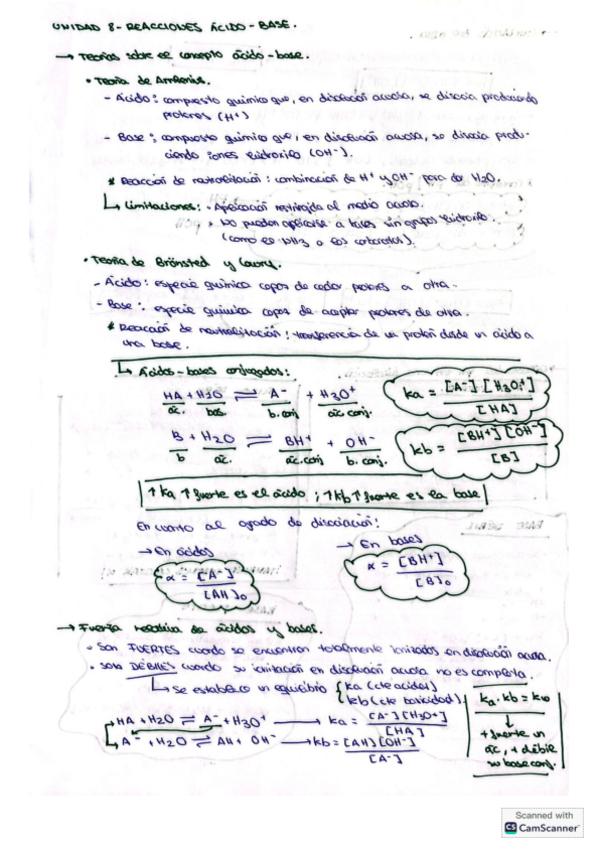 UNIDAD 8 - REACCIONES ÁCIDO - BASE.
→ Teorías sobre el concepto ácido - base.
• Teoría de Arrhenius.
- Ácido: compuesto químico que, en disolución acuosa, se disocia produciendo
protones (H⁺)
- Base: compuesto químico que, en disolución acuosa, se disocia produ-
ciendo iones hidroxilo (OH⁻).
* Reacción de neutralización: combinación de H⁺ y OH⁻ para dar H₂O.
↳ Limitaciones: • Aplicación restringida al medio acuoso.
• No pueden aplicarse a bases sin grupos hidroxilo.
(como es NH₃ o los carbonatos).
• Teoría de Brönsted y Lowry.
- Ácido: especie química capaz de ceder protones a otra.
- Base: especie química capaz de aceptar protones de otra.
* Reacción de neutralización: transferencia de un protón desde un ácido a
una base.
↳ Ácidos - bases conjugados:
HA + H₂O ⇌ A⁻ + H₃O⁺
ác. bas. b. conj ác. conj.
ka = [A⁻] [H₃O⁺] / [HA]
B + H₂O ⇌ BH⁺ + OH⁻
b ác. ác. conj b. conj.
kb = [BH⁺] [OH⁻] / [B]
↑ ka ↑ fuerte es el ácido ; ↑ kb ↑ fuerte es la base
En cuanto al grado de disociación:
→ En ácidos
α = [A⁻] / [AH]₀
→ En bases
α = [BH⁺] / [B]₀
→ Fuerza relativa de ácidos y bases.
• Son FUERTES cuando se encuentran totalmente ionizados en disolución acuosa.
• Son DÉBILES cuando su ionización en disolución acuosa no es completa.
↳ Se establece un equilibrio { ka (cte acidez)
kb (cte basicidad)
HA + H₂O ⇌ A⁻ + H₃O⁺ → ka = [A⁻] [H₃O⁺] / [HA]
A⁻ + H₂O ⇌ AH + OH⁻ → kb = [AH] [OH⁻] / [A⁻]
ka · kb = kw
↓
+ fuerte un
ác, + débil
su base conj.
Scanned with
CS CamScanner